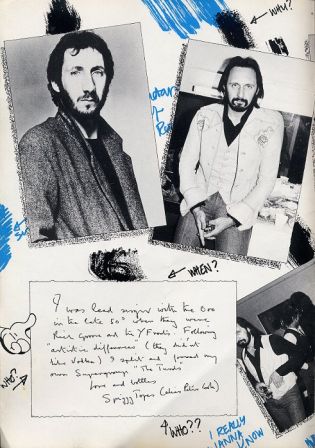 WHY?
WHEN?
I was lead singer with the Ooo
in the late 50s when they were
Rick Groove and the Y Fronts. Following
"artistic differences" (they didn't
like Vodka) I split and formed my
own Supergroup "The Turds"
Love and wobbles
Spiggy Topes (alias Peter Cole)
WHO?
WHO??
I REALLY
WANNA
KNOW